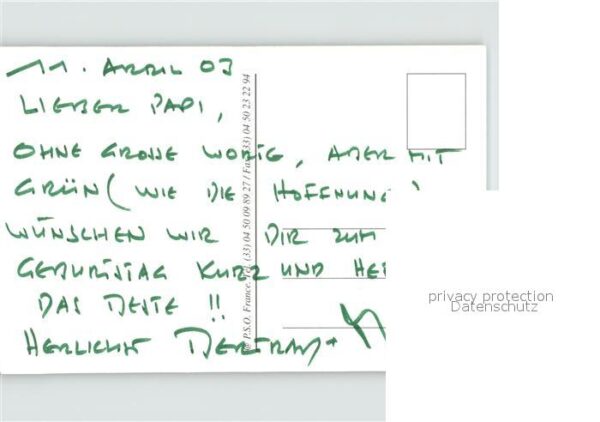 11. APRIL 03
LIEBER PAPI,
OHNE GROSSE WORTE, ABER MIT
GRÜN (WIE DIE HOFFNUNG)
WÜNSCHEN WIR DIR ZUM
GEBURTSTAG KURZ UND
DAS BESTE !!
HERLICHST BERTRAM +
© P.S.O. France. Tel. (33) 04 50 09 89 27 / Fax (33) 04 50 23 22 94
privacy protection
Datenschutz